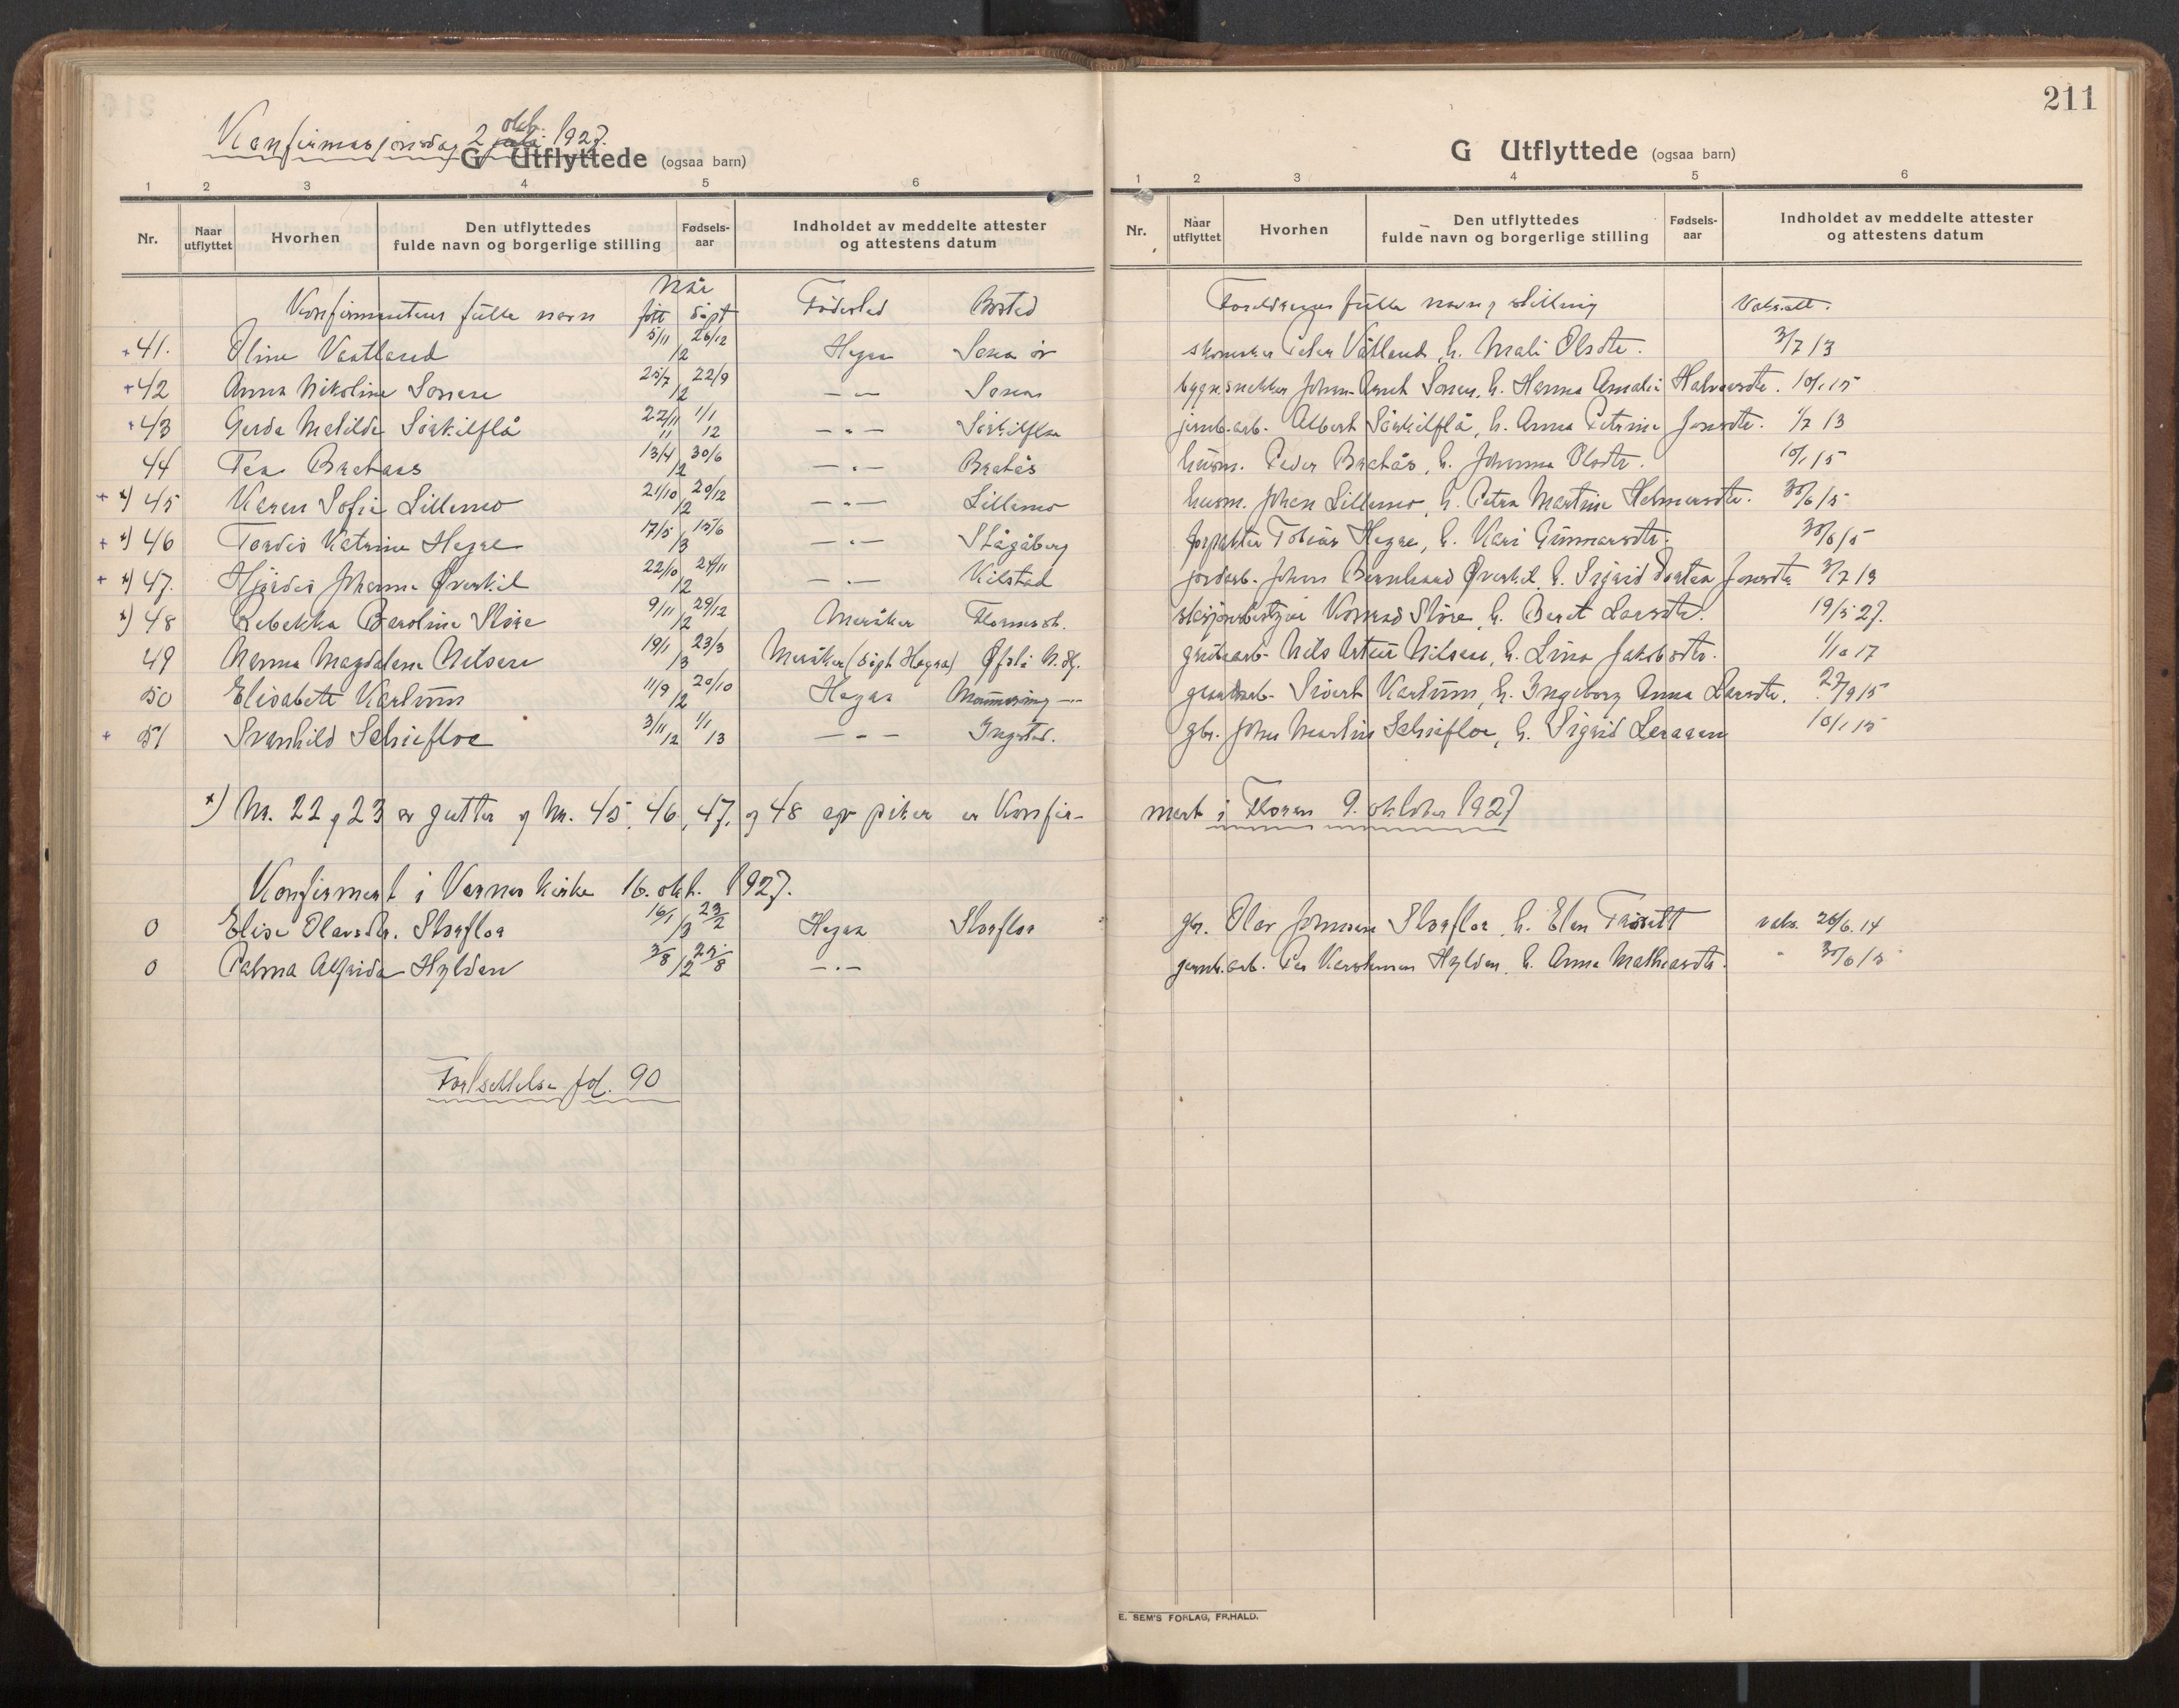 211
Konfirmasjonsdag 2 okt. 1927.
G Utflyttede (ogsaa barn)
1 2 3 4 5 6
Nr. Naar utflyttet Hvorhen Den utflyttedes fulde navn og borgerlige stilling Fødselsaar Indholdet av meddelte attester og attestens datum
G Utflyttede (ogsaa barn)
1 2 3 4 5 6
Nr. Naar utflyttet Hvorhen Den utflyttedes fulde navn og borgerlige stilling Fødselsaar Indholdet av meddelte attester og attestens datum
Når
Konfirmantens fulle navn født døpt Fødested Bosted Foreldrenes fulle navn og stilling Vaks.att.
+ 41. Oline Vaatland 5/11 12 26/12 Hegra Sona ør skomaker Peter Våtland, h. Mali Olsdtr. 3/7 13
+ 42 Anna Nikoline Sonere 25/7 12 22/9 — " — Sonas bygn.snekker Johan Arnt Sonen, h. Hanna Amalie Halvorsdtr. 10/1 15
+ 43 Gerda Matilde Sørkilflå 22/11 11 1/1 12 — " — Sørkilflaa jernb.arb. Albert Sørkilflå, h. Anna Petrine Jonsdtr. 1/7 13
44 Tea Bretaas 13/4 12 30/6 — " — Bretås husm. Peder Bretås, h. Johanna Olsdtr. 10/1 15
+ x) 45 Karen Sofie Lillemo 21/10 12 20/12 — " — Lillemo husm. Johan Lillemo, h. Petra Martine Helmersdtr. 30/6 15
+ x) 46 Tordis Katrine Hegre 17/5 13 15/6 — " — Stågåberg forpakter Tobias Hegre, h. Kari Gunnarsdtr. 30/6 15
+ x) 47. Hjørdis Johanna Øverkil 22/10 12 24/11 — " — Kilstad jordarb. Johan Bernhard Øverkil, h. Sigrid Dortea Jonsdtr. 3/7 13
x) 48 Rebekka Caroline Støre 9/11 12 29/12 Meråker Flornesst. stasjonsbestyrer Konrad Støre, h. Beret Larsdtr. 19/5 27.
49 Nanna Magdalena Nilsen 19/1 13 23/3 Meråker (døpt Hegra) Øfsti N. Stj. grubearb. Nils Artur Nilsen, h. Lina Jakobsdtr. 1/10 17
50 Elisabeth Karlsum 11/9 12 20/10 Hegra Mæumoring — " — Sivert Karlsum, h. Ingeborg Anna Larsdtr. 27/9 15
+ 51 Svanhild Schiefloe 3/11 12 1/1 13 — " — Ingstad. gbr. Johan Martin Schiefloe, h. Sigrid Leraaen 10/1 15
x) Nr. 22 og 23 av gutter og Nr. 45, 46, 47, og 48 av piker er Konfirmert i Floren 9. oktober 1927
Konfirmert i Vernes kirke 16. okt. 1927.
0 Elise Olavsdtr. Storfloa 16/1 13 23/2 Hegra Storfloa gbr. Olav Johnsen Storfloa, h. Elen Trøsett vaks. 26/6. 14
0 Palma Alfrida Hylden 3/8 12 25/8 — " — jernb.arb. Per Karstensen Hylden, h. Anna Mathiasdtr. " 30/6 15
Fortsettelse fol. 90
E. SEM'S FORLAG, FR.HALD.